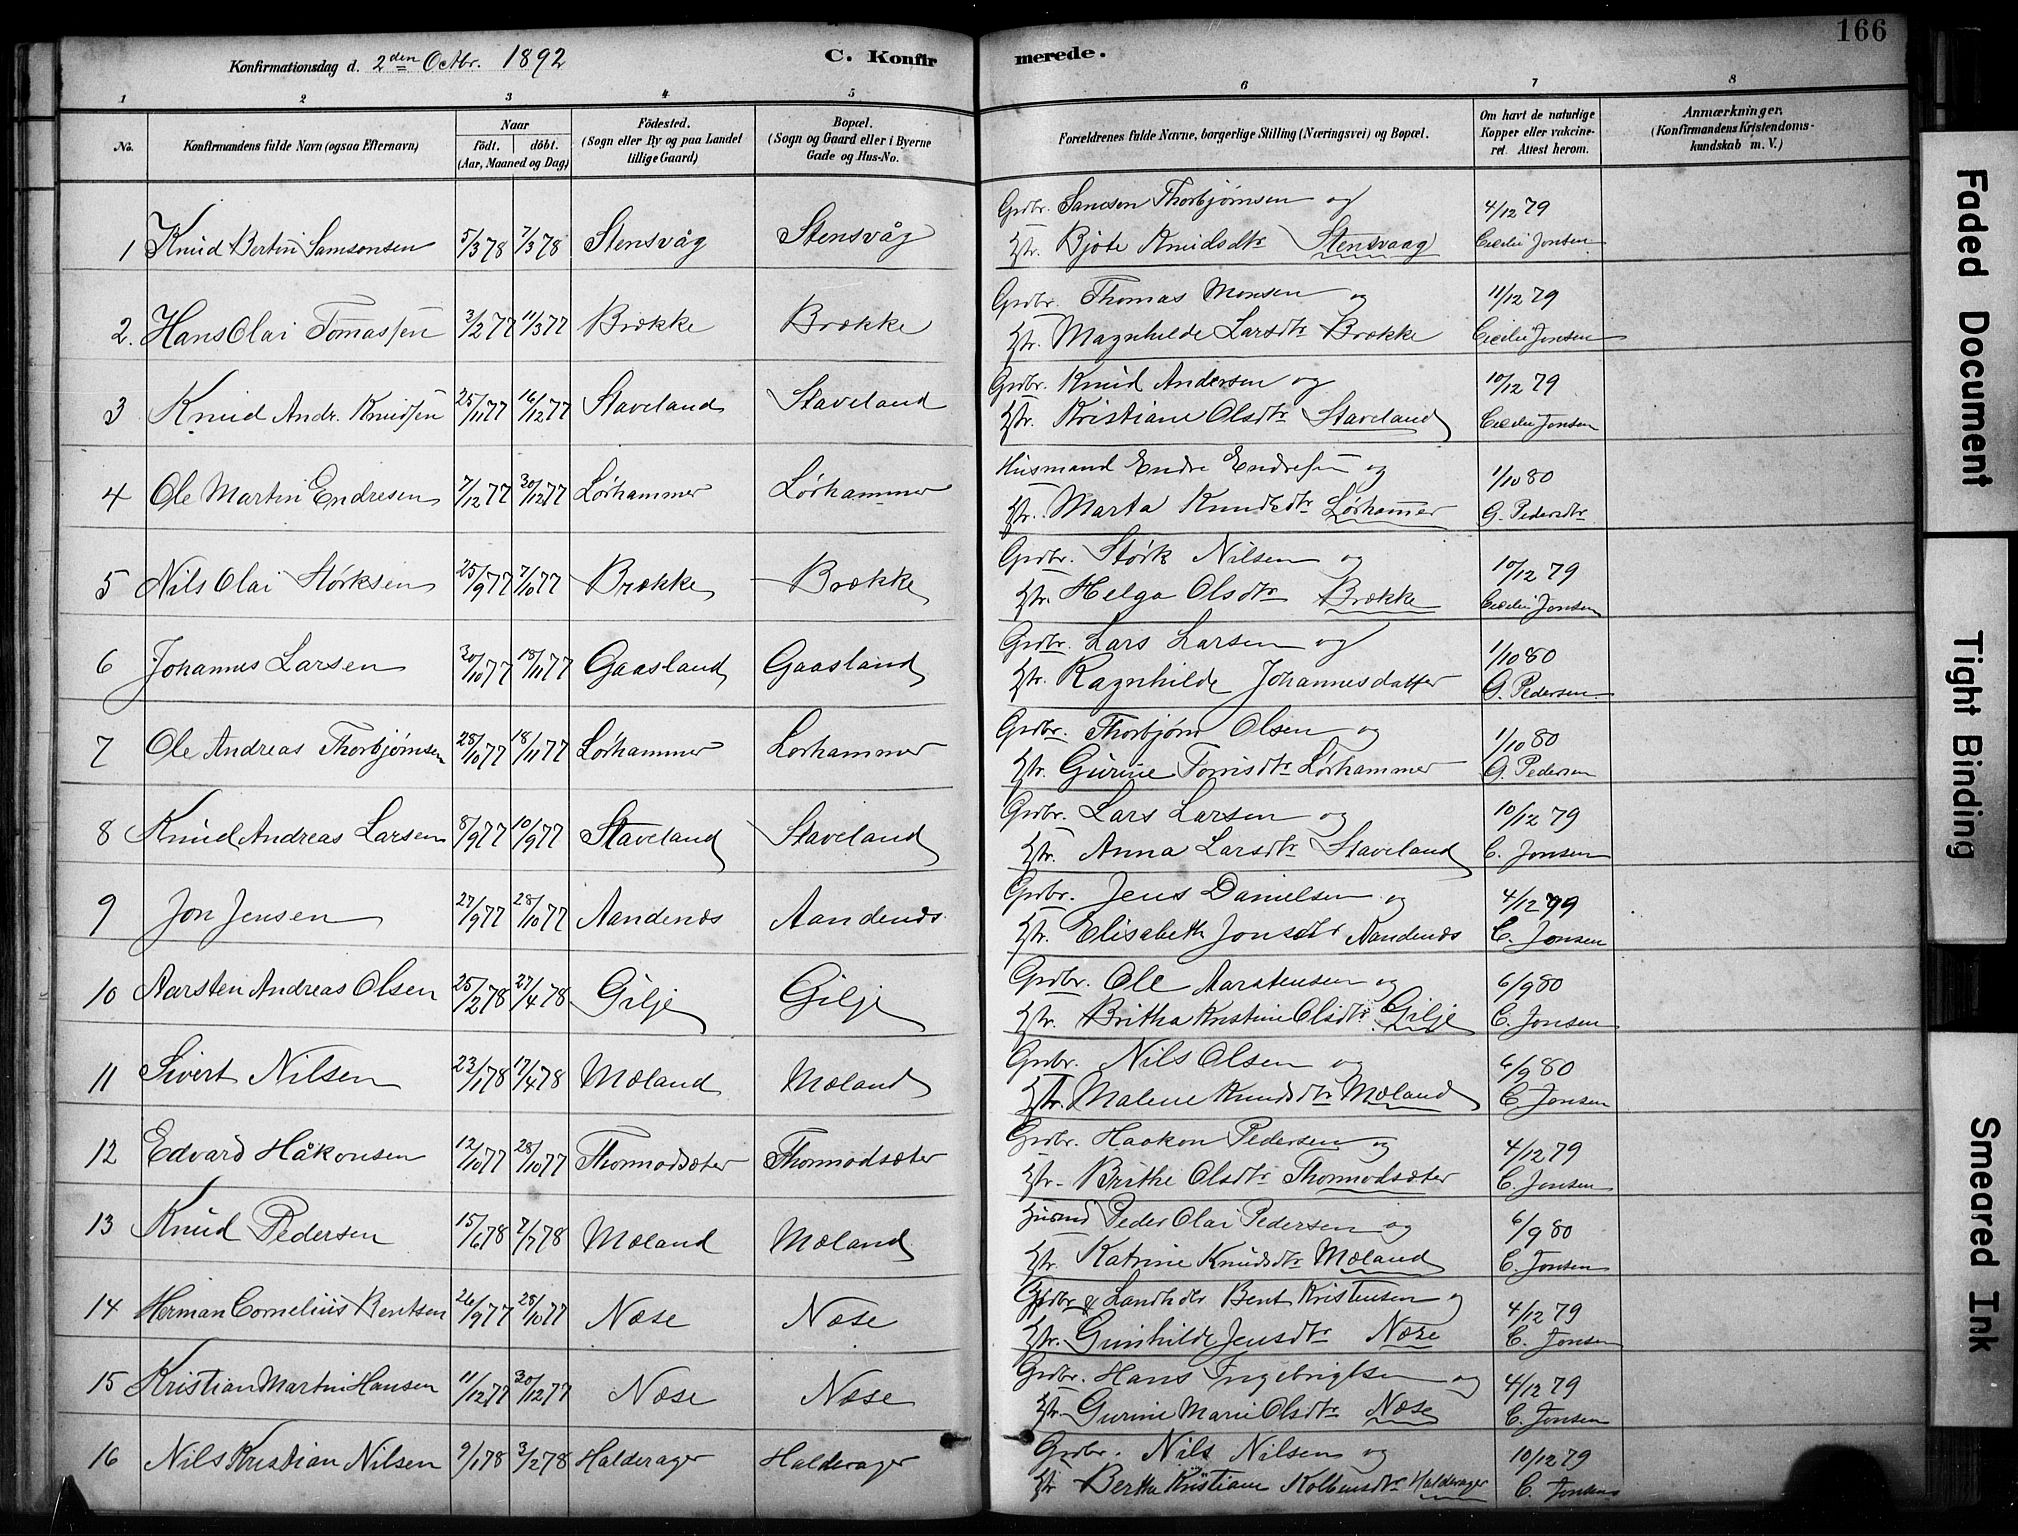 166
Konfirmationsdag d. 2den Octbr. 1892 C. Konfirmerede.
1 2 3 4 5 6 7 8
No. Konfirmandens fulde Navn (ogsaa Efternavn) Naar født. døbt. (Aar, Maaned og Dag) Fødested. (Sogn eller By og paa Landet tillige Gaard) Bopæl. (Sogn og Gaard eller i Byerne Gade og Hus-No. Forældrenes fulde Navne, borgerlige Stilling (Næringsvei) og Bopæl. Om havt de naturlige Kopper eller vakcineret. Attest herom. Anmærkninger. (Konfirmandens Kristendomskundskab m. V.)
Grdbr. Samson Thorbjørnsen og 4/12 79
1 Knud Bertin Samsonsen 5/3 78 7/3 78 Stensvåg Stensvåg Hstr. Bjote Knudsdtr Stensvaag Cecilie Jonsen
Grdbr. Thomas Monsen og 11/12 79
2. Hans Olai Tomassen 3/2 77 11/3 77 Brække Brække Hstr. Magnhilde Larsdtr Brække Cecilie Jonsen
Grdbr. Knud Andersen og 10/12 79
3 Knud Andr. Knudsen 25/11 77 16/12 77 Staveland Staveland Hstr. Kristiane Olsdtr Staveland Cecilie Jonsen
Husmand Endre Endresen og 1/10 80
4 Ole Martin Endresen 7/12 77 30/12 77 Lørhammer Lørhammer Hstr. Marta Knudsdtr Lørhammer G. Pedersdtr
Grdbr. Størk Nilsen og 10/12 79
5 Nils Olai Størksen 25/9 77 7/10 77 Brække Brække Hstr. Helga Olsdtr Brække Cecilie Jonsen
Grdbr. Lars Larsen og 1/10 80
6 Johannes Larsen 30/10 77 18/11 77 Gaasland Gaasland Hstr. Ragnhilde Johannesdatter G. Pedersen
Grdbr. Thorbjørn Olsen og 1/10 80
7 Ole Andreas Thorbjørnsen 28/10 77 18/11 77 Lørhammer Lorhammer Hstr. Gurine Torrisdtr Lørhammer G. Pedersen
Grdbr. Lars Larsen og 10/12 79
8 Knud Andreas Larsen 8/9 77 10/9 77 Staveland Staveland Hstr. Anna Larsdtr Staveland C. Jonsen
Grdbr. Jens Danielsen og 4/12 79
9 Jon Jensen 27/9 77 28/10 77 Aandenæs Aandenæs Hstr. Elisabeth Jonsdtr Aandenæs C. Jonsen
Grdbr. Ole Aarstensen og 6/9 80
10 Aarsten Andreas Olsen 25/2 78 27/4 78 Gilje Gilje Hstr. Britha Kristine Olsdtr Gilje C. Jonsen
Grdbr. Nils Olsen og 6/9 80
11 Sivert Nilsen 23/1 78 17/4 78 Mæland Mæland Hstr. Malene Knudsdtr Mæland C. Jonsen
Grdbr. Haakon Pedersen og 4/12 79
12 Edvard Håkonsen 12/10 77 28/10 77 Thormodsæter Thormodsæter Hstr. Brithe Olsdtr Thormodsæter C. Jonsen
Husmd Peder Olai Pedersen og 6/9 80
13 Knud Pedersen 15/6 78 7/7 78 Mæland Mæland Hstr. Katrine Knudsdtr Mæland C. Jonsen
Grdbr & Landhdlr Bent Kristensen og 4/12 79
14 Herman Cornelius Bentsen 26/9 77 28/10 77 Næse Næse Hstr. Gunhilde Jensdtr Næse C. Jonsen
Grdbr. Hans Ingebrigtsen og 4/12 79
15 Kristian Martin Hansen 11/12 77 30/12 77 Næse Næse Hstr. Gurine Marie Olsdtr Næse C. Jonsen
Grdbr. Nils Nilsen og 10/12 79
16 Nils Kristian Nilsen 9/1 78 3/2 78 Halderager Halderager Hstr Bertha Kristiane Kolbensdtr Halderager C. Jonsen
Faded Document
Tight Binding
Smeared Ink